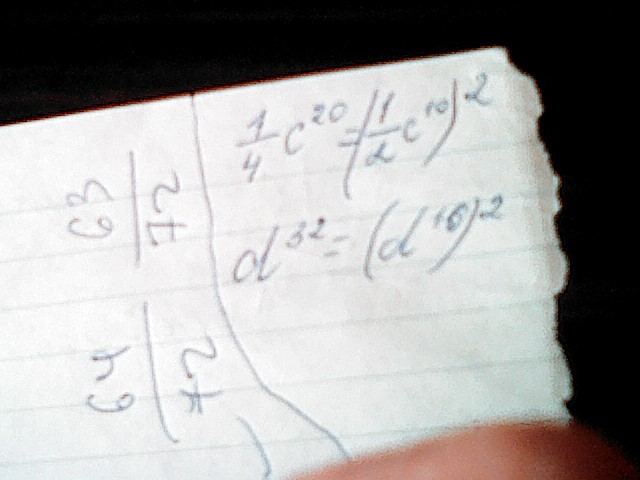 1/4 c^20 = (1/2 c^10)^2
d^32 = (d^16)^2
63/72
64/72